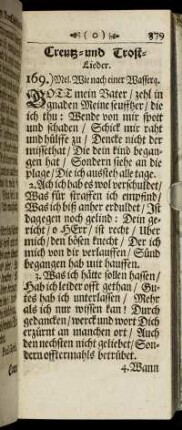 ( o ) 879
Creutz- und Trost-
Lieder.
169.) Mel. Wie nach einer Wasserq.
GOTT mein Vater / zehl in
gnaden Meine seufftzer / die
ich thu: Wende von mir spott
und schaden / Schick mir raht
und hülffe zu / Dencke nicht der
missethat / Die dein kind began-
gen hat / Sondern siehe an die
plage / Die ich ausstehe alle tage.
2. Ach ich hab es wol verschuldet /
Was für straffen ich empfind /
Was ich biß anher erduldet / Ist
dagegen noch gelind: Dein ge-
richt / o HErr / ist recht / Uber
mich / den bösen knecht / Der ich
mich von dir verlauffen / Sünd
begangen hab mit hauffen.
3. Was ich hätte sollen hassen /
Hab ich leider offt gethan / Gu-
tes hab ich unterlassen / Mehr
als ich nur wissen kan! Durch
gedancken / werck und wort Dich
erzürnt an manchen ort / Auch
den nechsten nicht geliebet / Son-
dern offtermahls betrübet.
4. Wann